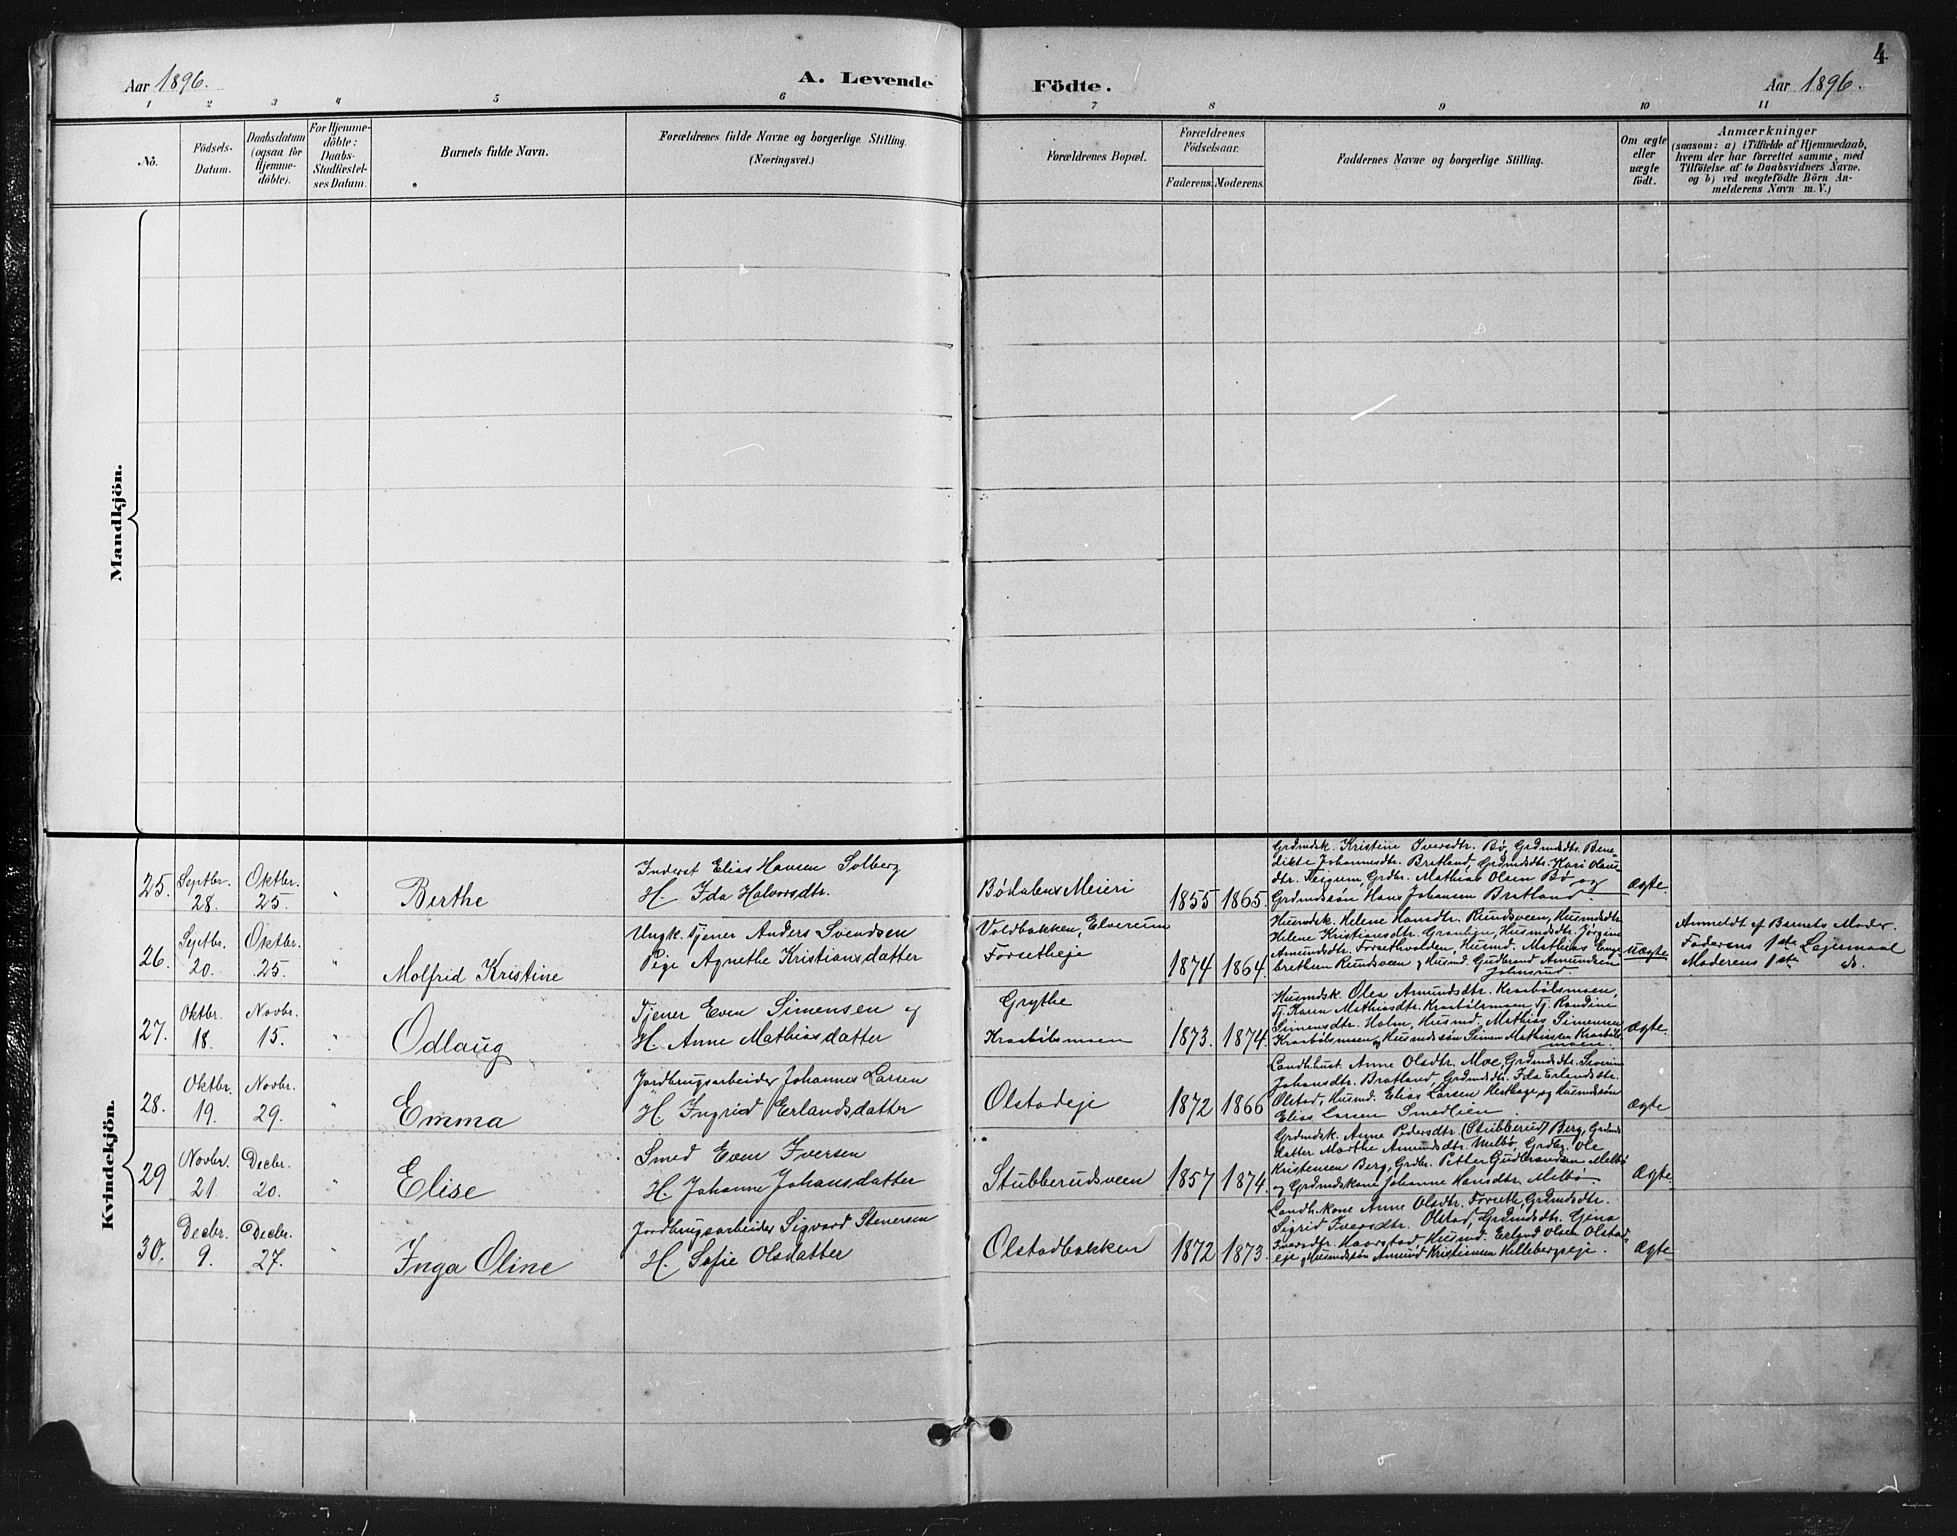 4
Aar 1896.
A. Levende
Födte.
Aar 1896.
1 2 3 4 5 6 7 8 9 10 11
No.
Födsels-
Datum.
Daabsdatum
(ogsaa for
Hjemme-
döbte).
For Hjemme-
döbte:
Daabs-
Stadfæstel-
ses Datum.
Barnets fulde Navn.
Forældrenes fulde Navne og borgerlige Stilling.
(Næringsvei.)
Forældrenes Bopæl.
Forældrenes
Födselsaar.
Faderens. Moderens.
Faddernes Navne og borgerlige Stilling.
Om ægte
eller
uægte
födt.
Anmærkninger
(saasom: a) i Tilfælde af Hjemmedaab,
hvem der har forrettet samme, med
Tilföielse af to Daabsvidners Navne.
og b) ved uægtefödte Börn An-
melderens Navn m. V.)
Mandkjön.
Kvindekjön.
25. Septbr. 28. Oktbr. 25. " Berthe
Inderst Elias Hansen Solberg
H. Ida Halvorsdtr.
Bödalens Meieri 1855 1865.
Grdmdsk. Kristine Iversdtr. Bø, Grdmdsdtr. Bene-
dikte Johannesdtr. Bratland, Grdmdsdtr. Kari Olaus-
dtr. Neigum, Grdbr. Mathias Olsen Bø og
Grdmdssön Hans Johansen Bratland.
Ægte.
26. Septbr. 20. Oktbr. 25. " Molfrid Kristine
Ungk. tjener Anders Svendsen
Pige Agnethe Kristiansdatter
Voldbakken, Elverum
Forsetheje 1874 1864
Husmdsk. Helene Hansdtr. Rundsveen, Husmdsdtr.
Helene Kristiansdtr. Granlien, Husmdsdtr. Jørgine
Amundsdtr. Forsethvolden, Husmd. Mathias Enge-
brethsen Rundsveen og Husmd. Gudbrand Amundsen
Johnsrud
Uægte.
Anmeldt af Barnets Moder.
Faderens 1ste Lejermaal
Moderens 1ste do.
27. Oktbr. 18. Novbr. 15. " Odlaug
Tjener Even Simensen og
H. Anne Mathiasdatter
Grythe
Kraabölsmoen 1873. 1874.
Husmdsk. Olea Amundsdtr. Kraabölsmoen,
Tj. Karen Mathiasdtr. Kraabölsmoen, Tj. Randine
Simensdtr. Holm, Husmd. Mathias Simensen
Kraabölsmoen og Husmdssön Simen Mathiasen Kraaböls-
moen.
Ægte.
28. Oktbr. 19. Novbr. 29. " Emma
Jordbrugsarbeider Johannes Larsen
H. Ingrid Erlandsdatter
Olstadeje 1872 1866
Landh.hust. Anne Olsdtr. Moe, Grdmdsdtr. Severine
Johansdtr. Bratland, Grdmdsdtr. Ida Erlandsdtr.
Olstad, Husmd. Elias Larsen og Husmdssön
Elias Larsen Smedlien.
Ægte
29 Novbr. 21 Decbr. 20. " Elise
Smed Even Iversen
H. Johanne Johansdatter
Stubberudsveen 1857 1874.
Grdmdsk. Anne Pedersdtr. (Stubberud) Berg, Grdmds-
datter Marthe Amundsdtr. Melbø, Grdbr. Ole
Kristensen Berg, Grdbr. Petter Gudbrandsen Melbø
og Grdmdskone Johanne Hansdtr. Melbø
Ægte.
30. Decbr. 9. Decbr. 27. " Inga Oline
Jordbrugsarbeider Sigvard Stenersen
H. Sofie Olsdatter
Olstadbakken 1872 1873.
Landh.kone Anne Olsdtr. Forseth, Grdmdsdtr.
Sigrid Iversdtr. Olstad, Grdmdsdtr. Gina
Iversdtr. Haarstad, Husmd. Erland Olsen Olstad-
eje og Husmdssön Amund Kristiansen Kollebergseje.
Ægte